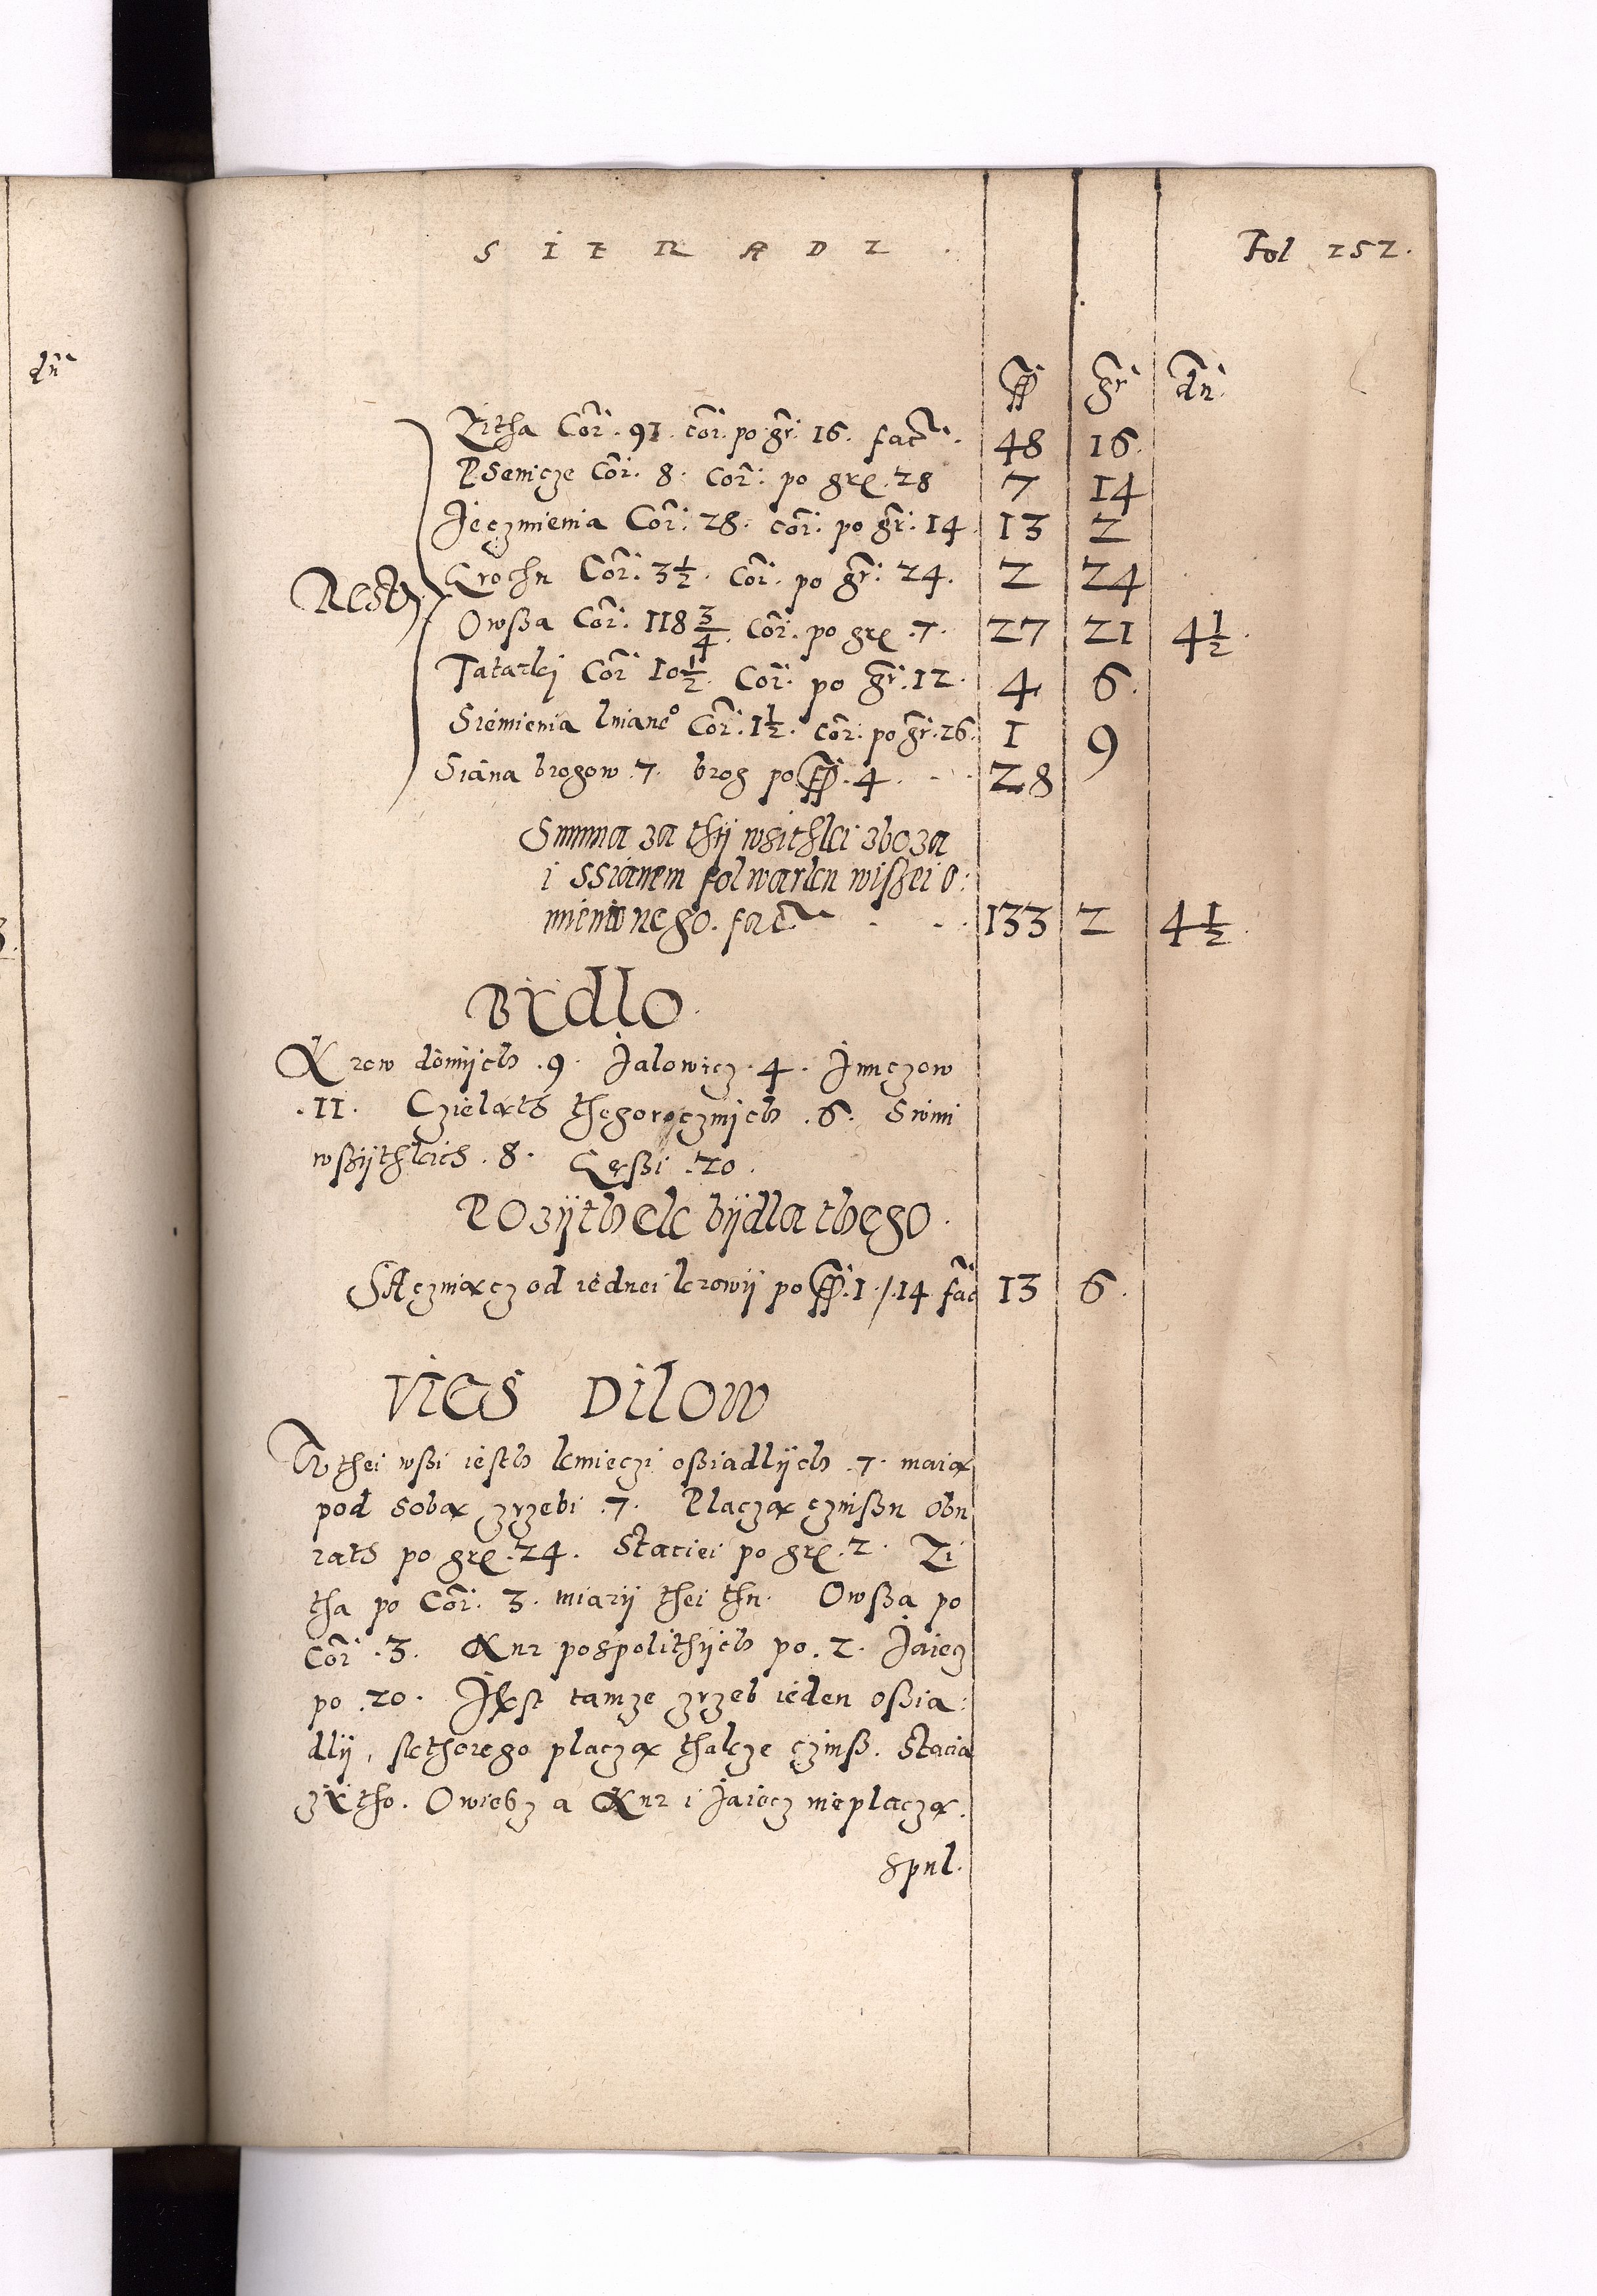 SIERADZ.
Fol 252.
ff gr dn
Zitha Cor. 91. cor. po gr. 16. fact. 48 16.
Psenicze Cor. 8. Cor. po gre. 28 7 14
Jęczmienia Cor. 28. cor. po gr. 14 13 2
Rest
Grochu Cor. 3½. Cor. po gr. 24. 2 24
Owßa Cor. 118¾. Cor. po gre .7. 27 21 4½.
Tatarki Cor 10½. Cor. po gr. 12. 4 6.
Siemienia lniane° Cor. 1½. cor. po gr. 26. 1 9
Siana brogow .7. brog po ff. 4. 28
Summa za thÿ wsithki zboza
i ssianem folwarku wißei o:
mienionego. fact 133 2 4½.
BYdlo.
Krow doinÿch .9. Jalowicz .4. Junczow
.11. Czieląth thegorocznich .6. Swini
wßÿthkich .8. Gęßi .20.
POzÿthek bÿdla thego.
SAcznączod iednei krowÿ po ff. 1 /.14 fac 13 6.
VIES DILOW
W thei wßi iesth kmieczi oßiadlÿch .7. maią
pod sobą zrzebi .7. Placzą czinßu Obu
rath po gre. 24. Staciei po gre. 2. Zi
tha po Cor. 3. miarÿ thei thu. Owßa po
Cor .3. Kur pospolithÿch po .2. Jaiecz
po .20. JEst tamze zrzeb ieden oßia:
dlÿ, kthorego placzą thakze czinß. Stacia
zYtho. Owiesz a Kur i Jaiecz nieplaczą.
spul.